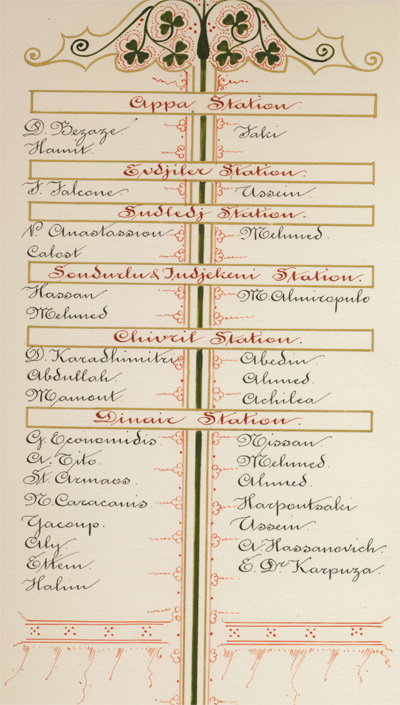 Appa Station.
D. Bezaze
Hamit.
Faki
Evdjiler Station.
F. Falcone.
Ussein
Sudledj Station.
N. Anastassiou
Calost
Mehmed.
Soudurlu & Judjekeni Station.
Hassan
Mehmed
M. Almiropulo
Chivril Station.
D. Karadhimitri
Abdullah.
Mamout.
Abedin.
Ahmed.
Achilea
Dinair Station.
G. Economidis.
A. Tito.
St. Armaos.
N. Caracanis.
Yacoup.
Aly
Ethem
Halim
Nissan.
Mehmed.
Ahmed.
Harpoutsaki
Ussein
A. Hassanovich.
E. Dr Karpuza.